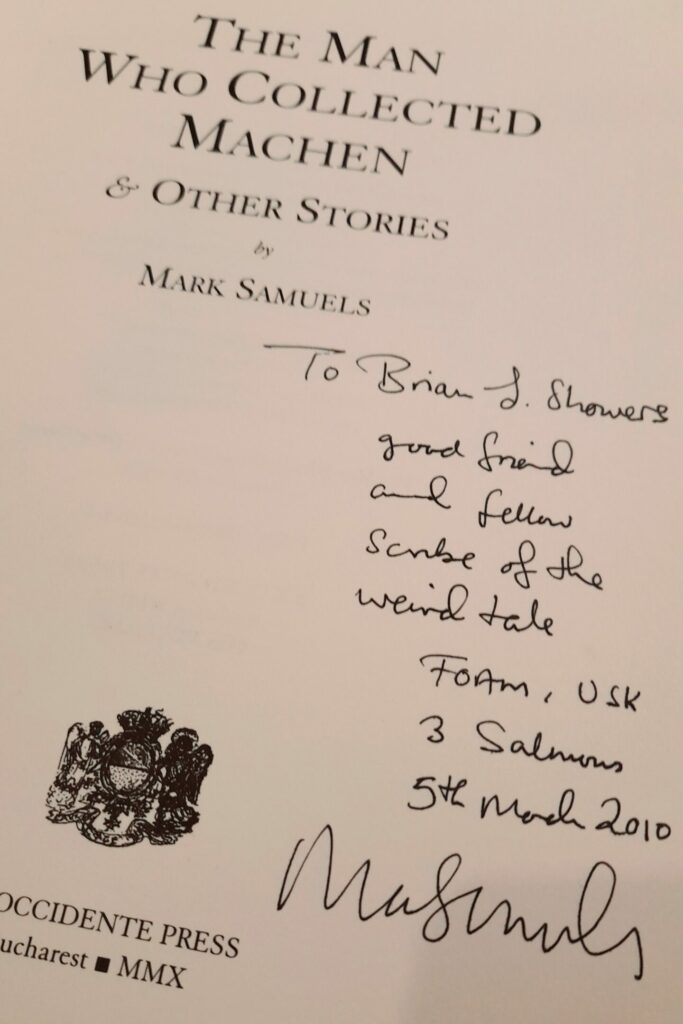 THE MAN
WHO COLLECTED
MACHEN
& OTHER STORIES
by
MARK SAMUELS
To Brian J. Showers
good friend
and fellow
Scribe of the
weird tale
FOAM, USK
3 Salmons
5th March 2010
OCCIDENTE PRESS
ucharest ■ MMX